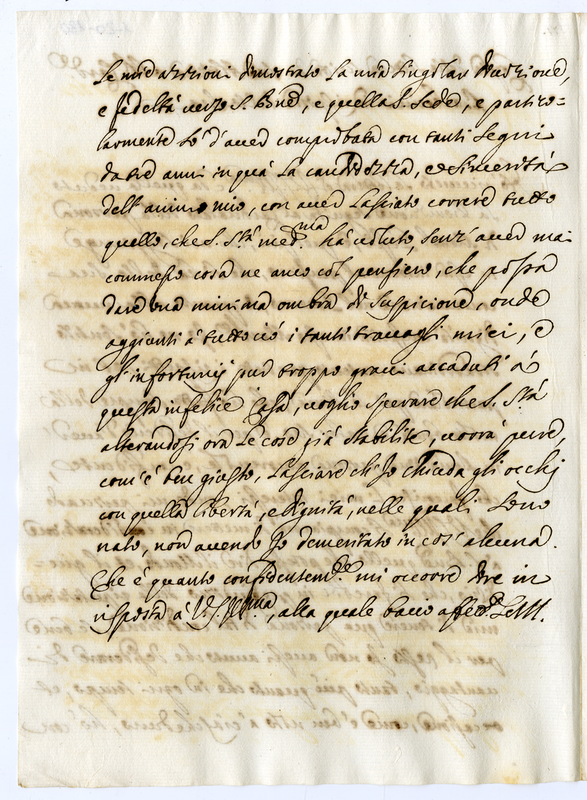 Le mie azzioni dimostrato la mia singolar devozione,
e fedeltà verso S. Bne, e questa S. Sede, e partico=
larmente hò d'aver comprobata con tanti segni
da tre anni in quà la candidezza, e sincerità
dell'animo mio, con aver lasciato correre tutto
quello, che S. Stà med.ma hà voluto, senz'aver mai
commesso cosa ne anco col pensiero, che possa
dare una minima ombra di suspicione, onde
aggiunti à tutto ciò i tanti travagli miei, e
gl'infortunij pur troppo gravi accaduti à
questa infelice Casa, voglio sperare che S. Stà
alterandosi ora le cose già stabilite, vorrà pure,
com'è ben giusto, lasciare ch'Io chiuda gli occhi
con quella libertà, e dignità, nelle quali sono
nato, non avendo Io demeritato in cos' alcuna.
Che è quanto confidentem.te mi occorre dire in
risposta à V.S. Ill.ma, alla quale bacio aff.e